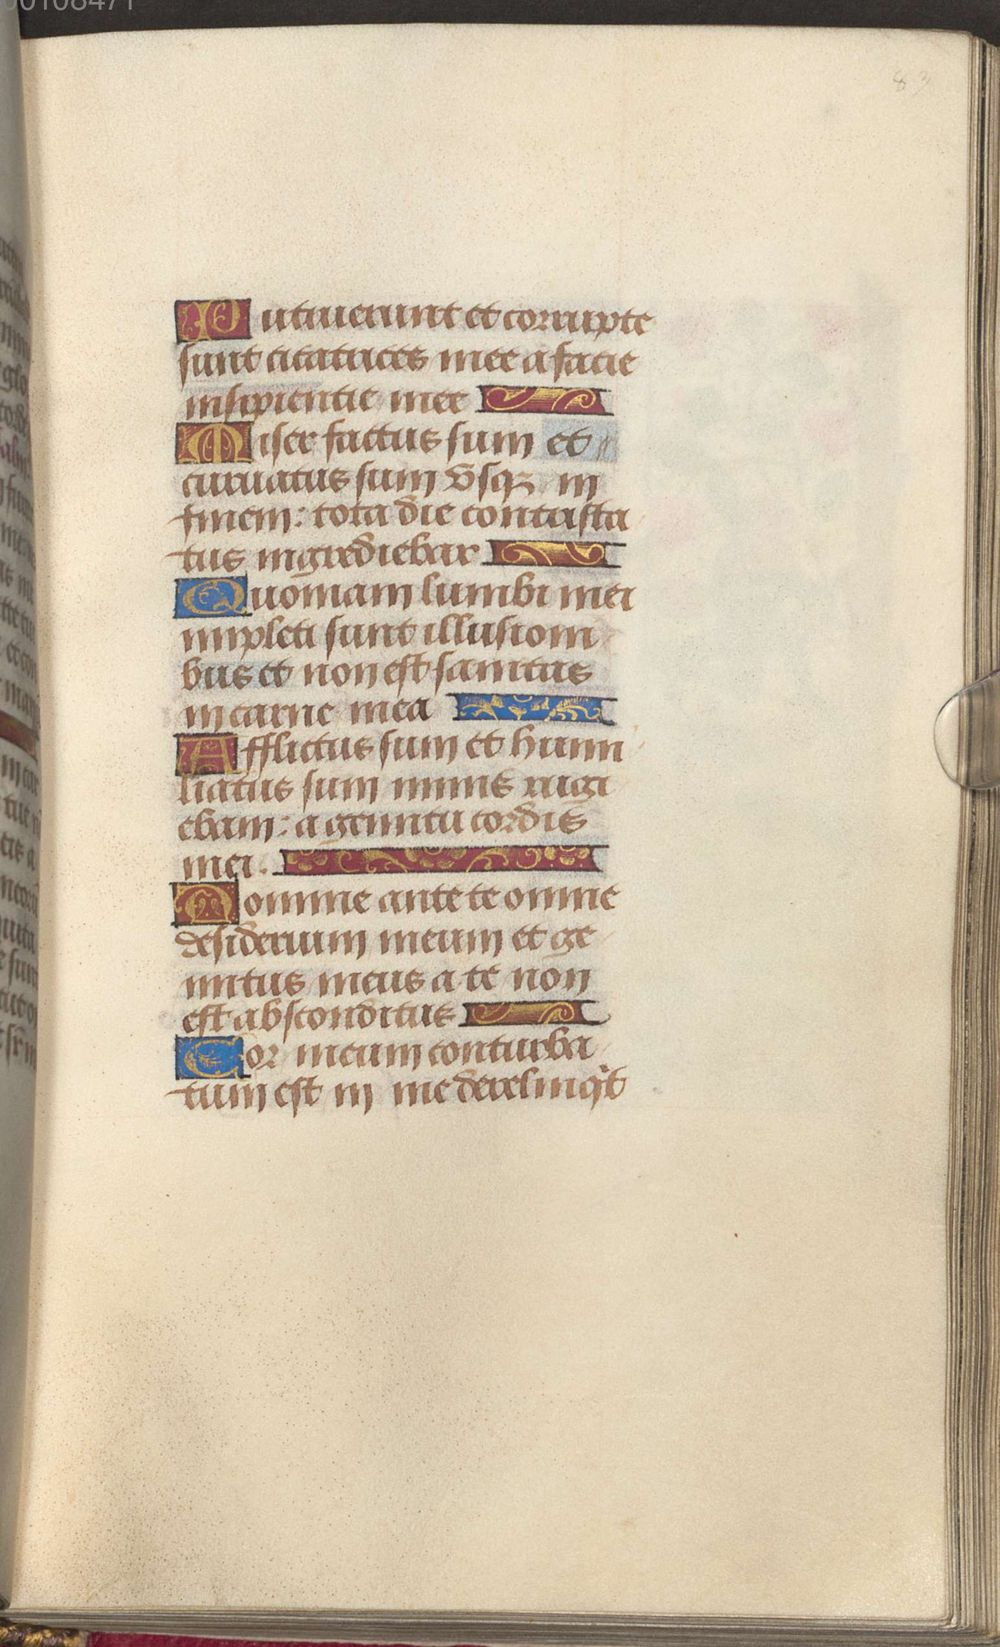 00108471
83
Putruerunt et corrupte
sunt cicatrices mee a facie
insipientie mee
Miser factus sum et
curuatus sum vsqz in
finem: tota die contrista
tus ingrediebar
Quoniam lumbi mei
impleti sunt illusioni
bus et non est sanitas
in carne mea
Afflictus sum et humi
liatus sum nimis rugi
ebam: a gemitu cordis
mei.
Domine ante te omne
desiderium meum et ge
mitus meus a te non
est absconditus
Cor meum conturba
tum est in me dereliquit